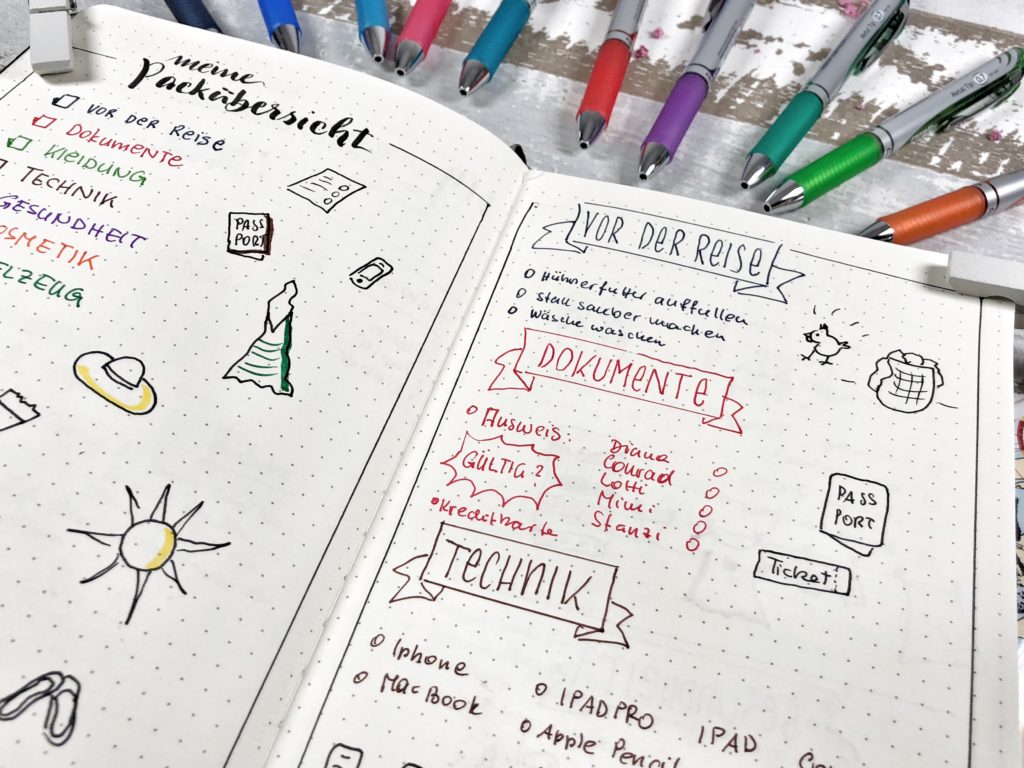 meine
Packübersicht
VOR DER REISE
DOKUMENTE
KLEIDUNG
TECHNIK
GESUNDHEIT
PASS
PORT
VOR DER REISE
Hühnerfutter auffüllen
Stall sauber machen
Wäsche waschen
DOKUMENTE
Ausweis: Diana
Conrad
Lotti
Mimi
Stanzi
GÜLTIG?
Kreditkarte
PASS
PORT
Ticket
TECHNIK
Iphone
MacBook
IPADPRO IPAD
Apple Pencil
Metal Tip